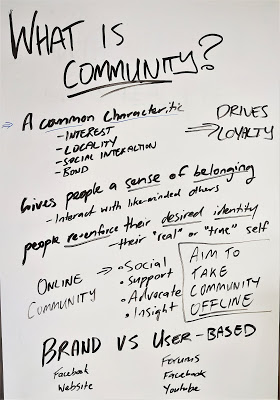 WHAT IS
COMMUNITY?
⇒ A common characteritic
- INTEREST
- LOCALITY
- SOCIAL INTERACTION
- BOND
⇒ DRIVES
LOYALTY
Gives people a sense of belonging
- Interact with like-minded others
people re-enforce their desired identity
- their "real" or "true" self
ONLINE
COMMUNITY
⇒ • Social
• Support
• Advocate
• Insight
AIM TO
TAKE
COMMUNITY
OFFLINE
BRAND VS USER-BASED
Facebook
Website
Forums
Facebook
Youtube